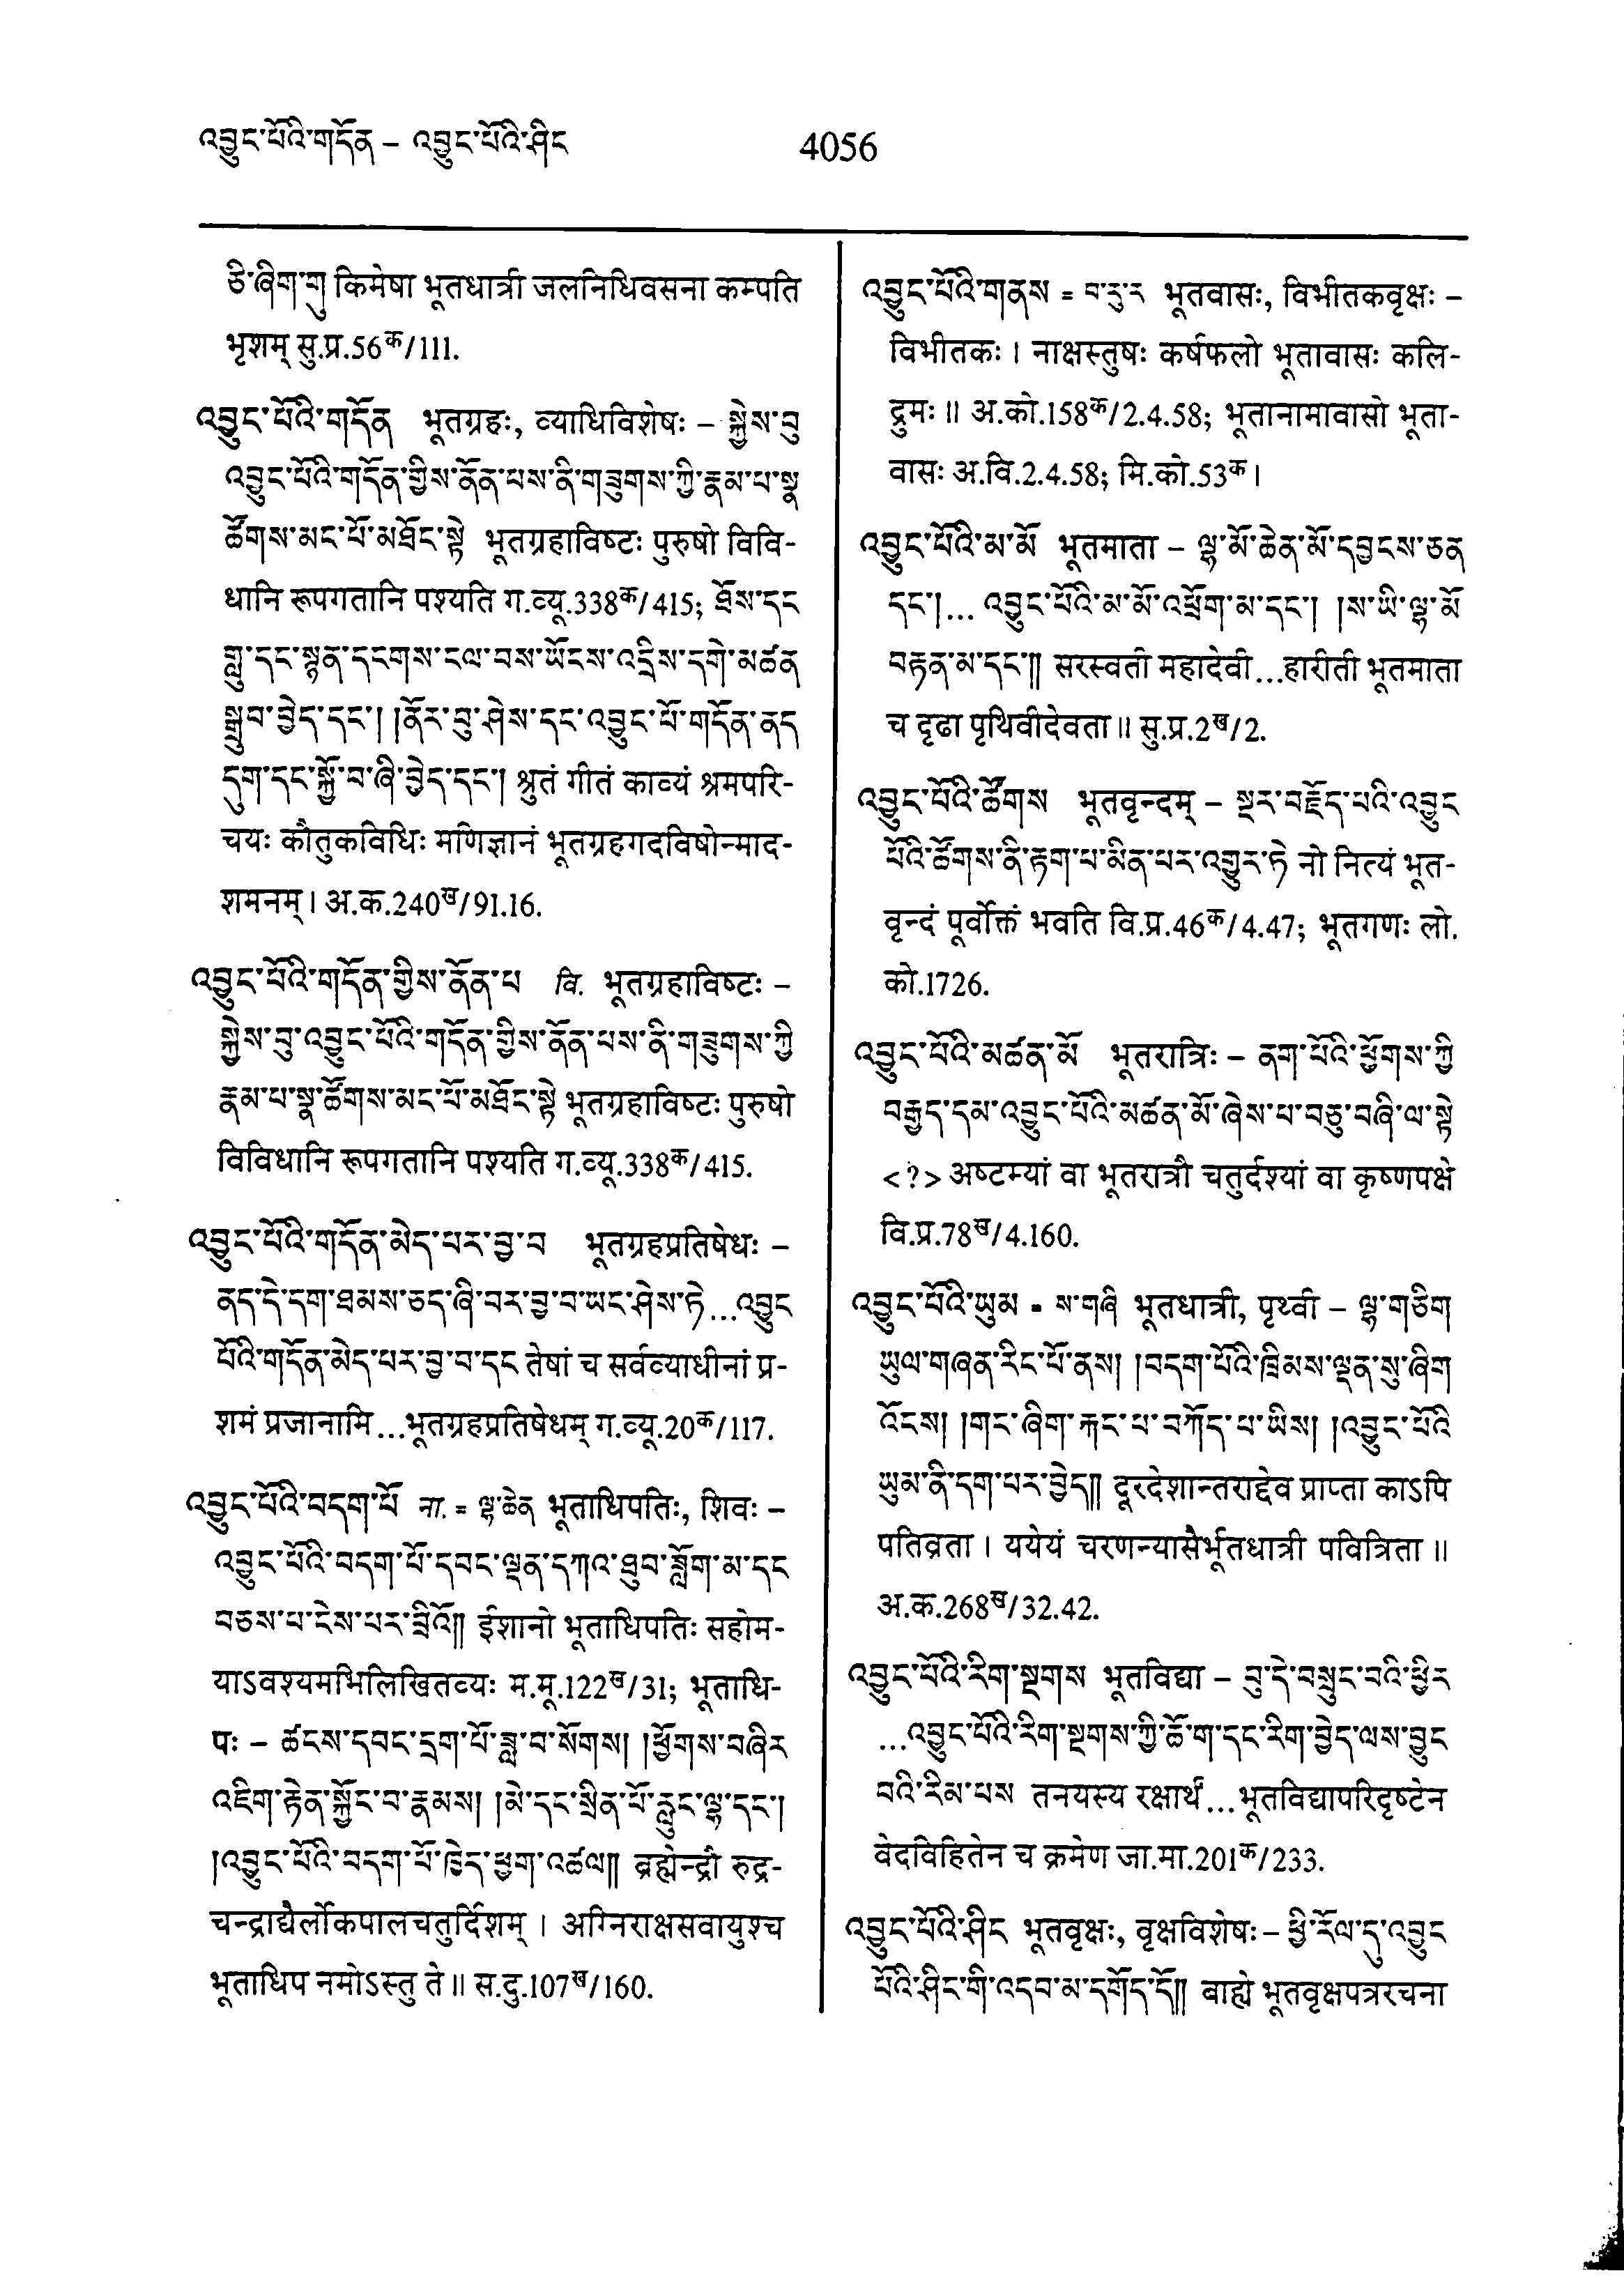 འབྱུང་པོའི་གདོན – འབྱུང་པོའི་ཤིང
4056
ཅི་ཞིག་གུ किमेषा भूतधात्री जलनिधिवसना कम्पति
भृशम् सु.प्र.56क/111.
འབྱུང་པོའི་གདོན भूतग्रहः, व्याधिविशेषः – སྐྱེས་བུ
འབྱུང་པོའི་གདོན་གྱིས་ནོན་པས་ནི་གཟུགས་ཀྱི་རྣམ་པ་སྣ
ཚོགས་མང་པོ་མཐོང་སྟེ भूतग्रहाविष्टः पुरुषो विवि-
धानि रूपगतानि पश्यति ग.व्यू.338क/415; ཐོས་དང
གླུ་དང་སྙན་དངགས་ངལ་བས་ཡོངས་འདྲིས་དགེ་མཚན
སྒྲུབ་བྱེད་དང་། །ནོར་བུ་ཤེས་དང་འབྱུང་པོ་གདོན་ནད
དུག་དང་སྐྱོ་བ་ཞི་བྱེད་དང་། श्रुतं गीतं काव्यं श्रमपरि-
चयः कौतुकविधिः मणिज्ञानं भूतग्रहगदविषोन्माद-
शमनम् । अ.क.240ख/91.16.
འབྱུང་པོའི་གདོན་གྱིས་ནོན་པ वि. भूतग्रहाविष्टः –
སྐྱེས་བུ་འབྱུང་པོའི་གདོན་གྱིས་ནོན་པས་ནི་གཟུགས་ཀྱི
རྣམ་པ་སྣ་ཚོགས་མང་པོ་མཐོང་སྟེ भूतग्रहाविष्टः पुरुषो
विविधानि रूपगतानि पश्यति ग.व्यू.338क/415.
འབྱུང་པོའི་གདོན་མེད་པར་བྱ་བ भूतग्रहप्रतिषेधः –
ནད་དེ་དག་ཐམས་ཅད་ཞི་བར་བྱ་བ་ཡང་ཤེས་ཏེ...འབྱུང
པོའི་གདོན་མེད་པར་བྱ་བ་དང तेषां च सर्वव्याधीनां प्र-
शमं प्रजानामि...भूतग्रहप्रतिषेधम् ग.व्यू.20क/117.
འབྱུང་པོའི་བདག་པོ ना. = ལྷ་ཆེན भूताधिपतिः, शिवः –
འབྱུང་པོའི་བདག་པོ་དབང་ལྡན་དཀའ་ཐུབ་ཟློག་མ་དང
བཅས་པ་ངེས་པར་བྲིའོ།། ईशानो भूताधिपतिः सहोम-
याऽवश्यमभिलिखितव्यः म.मू.122ख/31; भूताधि-
पः – ཚངས་དབང་དྲག་པོ་ཟླ་བ་སོགས། །ཕྱོགས་བཞིར
འཇིག་རྟེན་སྐྱོང་བ་རྣམས། །མེ་དང་སྲིན་པོ་རླུང་ལྷ་དང་།
།འབྱུང་པོའི་བདག་པོ་ཁྱེད་ཕྱག་འཚལ།། ब्रह्मेन्द्रौ रुद्र-
चन्द्राद्यैर्लोकपालचतुर्दिशम् । अग्निराक्षसवायुश्च
भूताधिप नमोऽस्तु ते ॥ स.दु.107ख/160.
འབྱུང་པོའི་གནས = བ་རུ་ར भूतवासः, विभीतकवृक्षः –
विभीतकः । नाक्षस्तुषः कर्षफलो भूतावासः कलि-
द्रुमः ॥ अ.को.158क/2.4.58; भूतानामावासो भूता-
वासः अ.वि.2.4.58; मि.को.53क ।
འབྱུང་པོའི་མ་མོ भूतमाता – ལྷ་མོ་ཆེན་མོ་དབྱངས་ཅན
དང་།... འབྱུང་པོའི་མ་མོ་འཕྲོག་མ་དང་། །ས་ཡི་ལྷ་མོ
བརྟན་མ་དང་།། सरस्वती महादेवी...हारीती भूतमाता
च दृढा पृथिवीदेवता ॥ सु.प्र.2ख/2.
འབྱུང་པོའི་ཚོགས भूतवृन्दम् – སྔར་བརྗོད་པའི་འབྱུང
པོའི་ཚོགས་ནི་རྟག་པ་མིན་པར་འགྱུར་ཏེ नो नित्यं भूत-
वृन्दं पूर्वोक्तं भवति वि.प्र.46क/4.47; भूतगणः लो.
को.1726.
འབྱུང་པོའི་མཚན་མོ भूतरात्रिः – ནག་པོའི་ཕྱོགས་ཀྱི
བརྒྱད་དམ་འབྱུང་པོའི་མཚན་མོ་ཞེས་པ་བཅུ་བཞི་ལ་སྟེ
<?> अष्टम्यां वा भूतरात्रौ चतुर्दश्यां वा कृष्णपक्षे
वि.प्र.78ख/4.160.
འབྱུང་པོའི་ཡུམ = ས་གཞི भूतधात्री, पृथ्वी – ལྷ་གཅིག
ཡུལ་གཞན་རིང་པོ་ནས། །བདག་པོའི་ཁྲིམས་ལྡན་སུ་ཞིག
འོངས། །གང་ཞིག་རྐང་པ་བཀོད་པ་ཡིས། །འབྱུང་པོའི
ཡུམ་ནི་དག་པར་བྱེད།། दूरदेशान्तराद्देव प्राप्ता काऽपि
पतिव्रता । ययेयं चरणन्यासैर्भूतधात्री पवित्रिता ॥
अ.क.268ख/32.42.
འབྱུང་པོའི་རིག་སྔགས भूतविद्या – བུ་དེ་བསྲུང་བའི་ཕྱིར
...འབྱུང་པོའི་རིག་སྔགས་ཀྱི་ཆོ་ག་དང་རིག་བྱེད་ལས་བྱུང
བའི་རིམ་པས तनयस्य रक्षार्थं...भूतविद्यापरिदृष्टेन
वेदविहितेन च क्रमेण जा.मा.201क/233.
འབྱུང་པོའི་ཤིང भूतवृक्षः, वृक्षविशेषः – ཕྱི་རོལ་དུ་འབྱུང
པོའི་ཤིང་གི་འདབ་མ་དགོད་དོ།། बाह्ये भूतवृक्षपत्ररचना